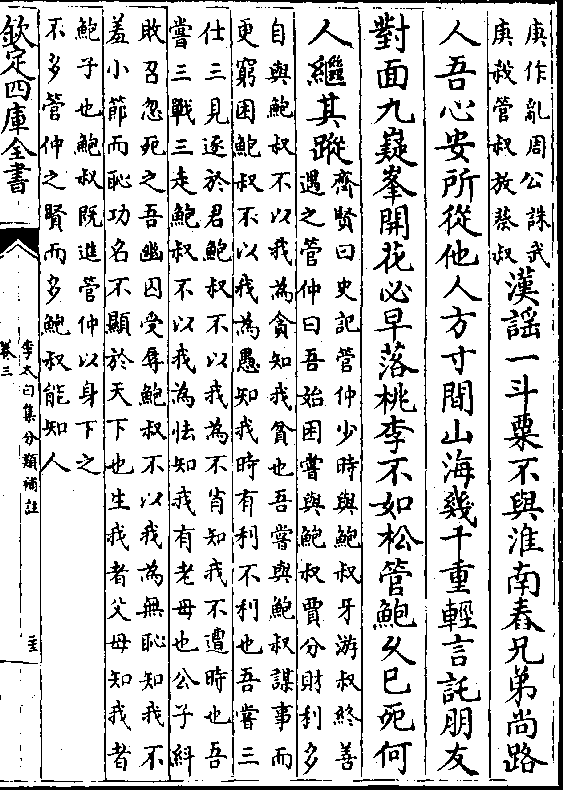 庚作亂周公誅武
庚殺管叔放蔡叔
漢謡一斗粟不與淮南舂兄弟尚路
人吾心安所從他人方寸間山海幾千重輕言託朋友
對面九嶷峯開花必早落桃李不如松管鮑久已死何
人繼其蹤
齊賢曰史記管仲少時與鮑叔牙游叔終善
遇之管仲曰吾始困嘗與鮑叔賈分財利多
自與鮑叔不以我為貪知我貧也吾嘗與鮑叔謀事而
更窮困鮑叔不以我為愚知我時有利不利也吾嘗三
仕三見逐於君鮑叔不以我為不肖知我不遭時也吾
嘗三戰三走鮑叔不以我為怯知我有老母也公子糾
敗召忽死之吾幽囚受辱鮑叔不以我為無恥知我不
羞小節而恥功名不顯於天下也生我者父母知我者
鮑子也鮑叔既進管仲以身下之
不多管仲之賢而多鮑叔能知人
欽定四庫全書
李太白集分類補註
卷三